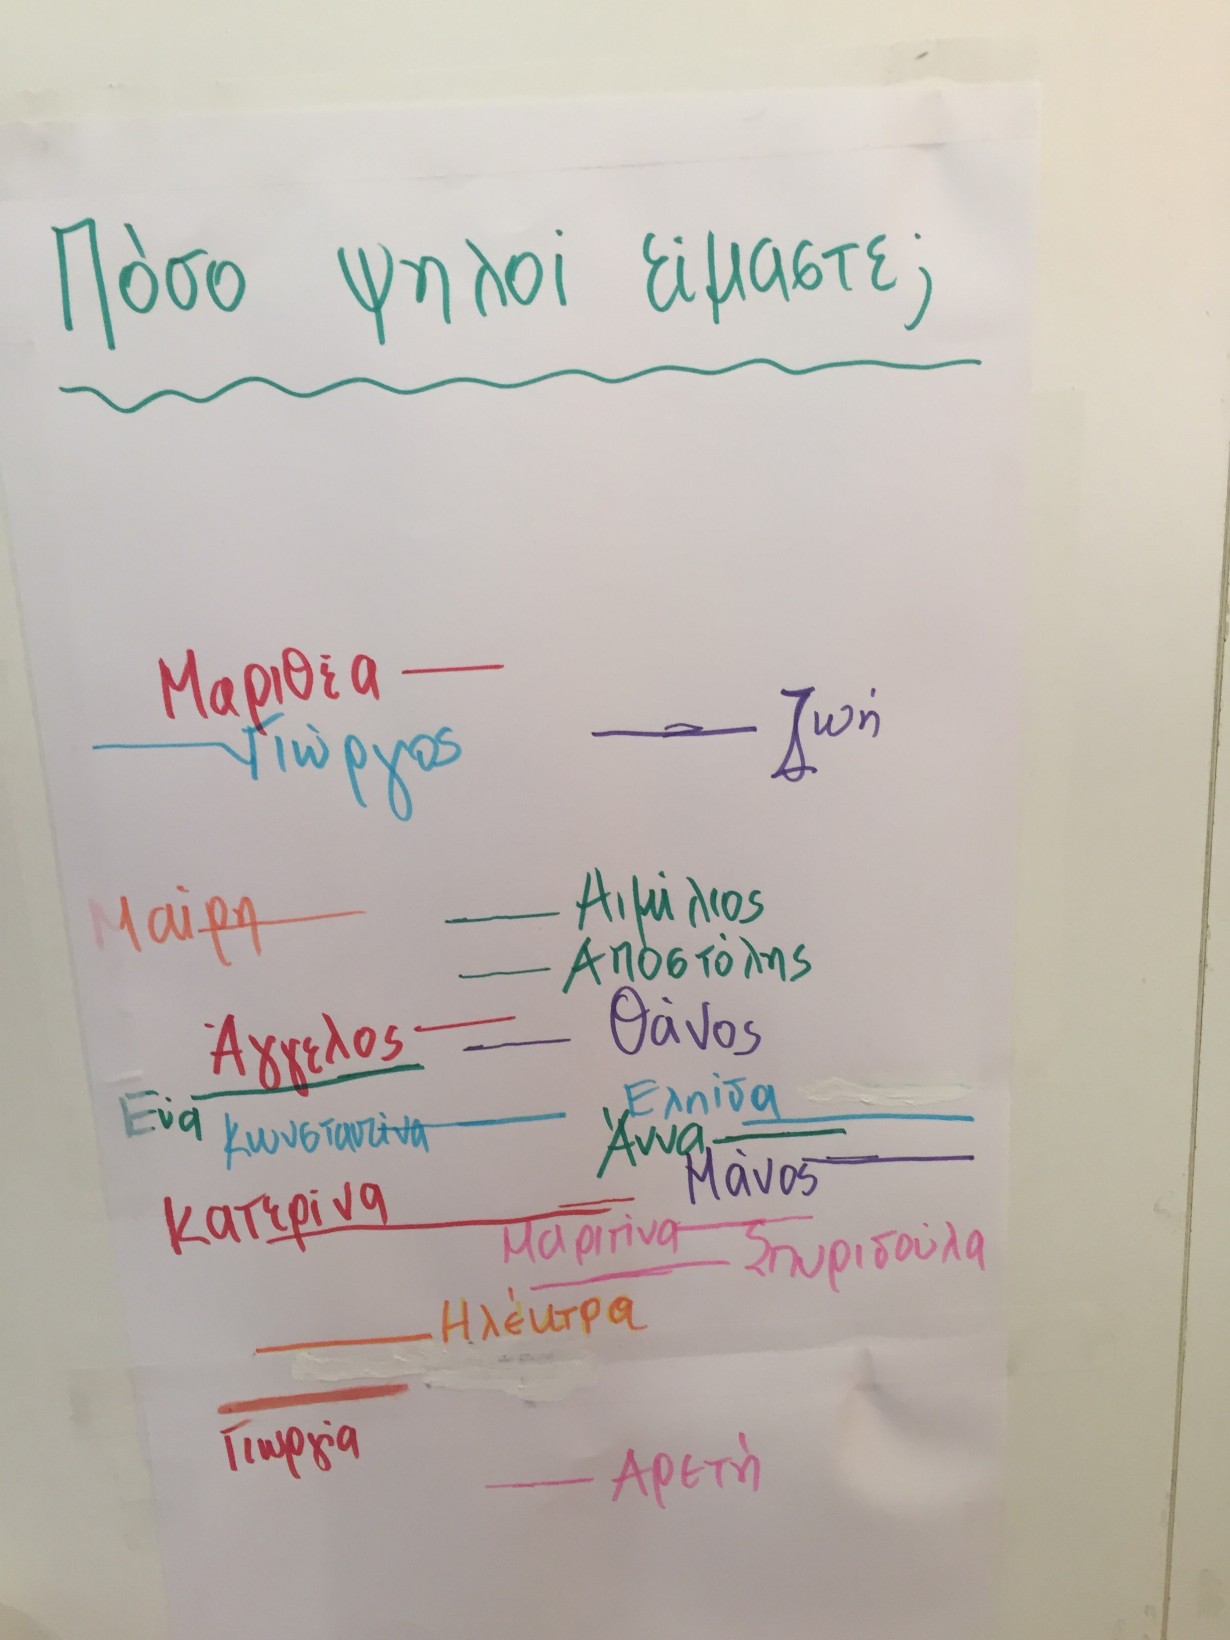 Πόσο ψηλοί είμαστε;
Μαριθέα
Γιώργος
Ζωή
Μαίρη
Αιμίλιος
Αποστόλης
Άγγελος
Θάνος
Εύα
Ελπίδα
Κωνσταντίνα
Άννα
Μάνος
Κατερίνα
Μαριτίνα
Σπυριδούλα
Ηλέκτρα
Γιωργία
Αρετή